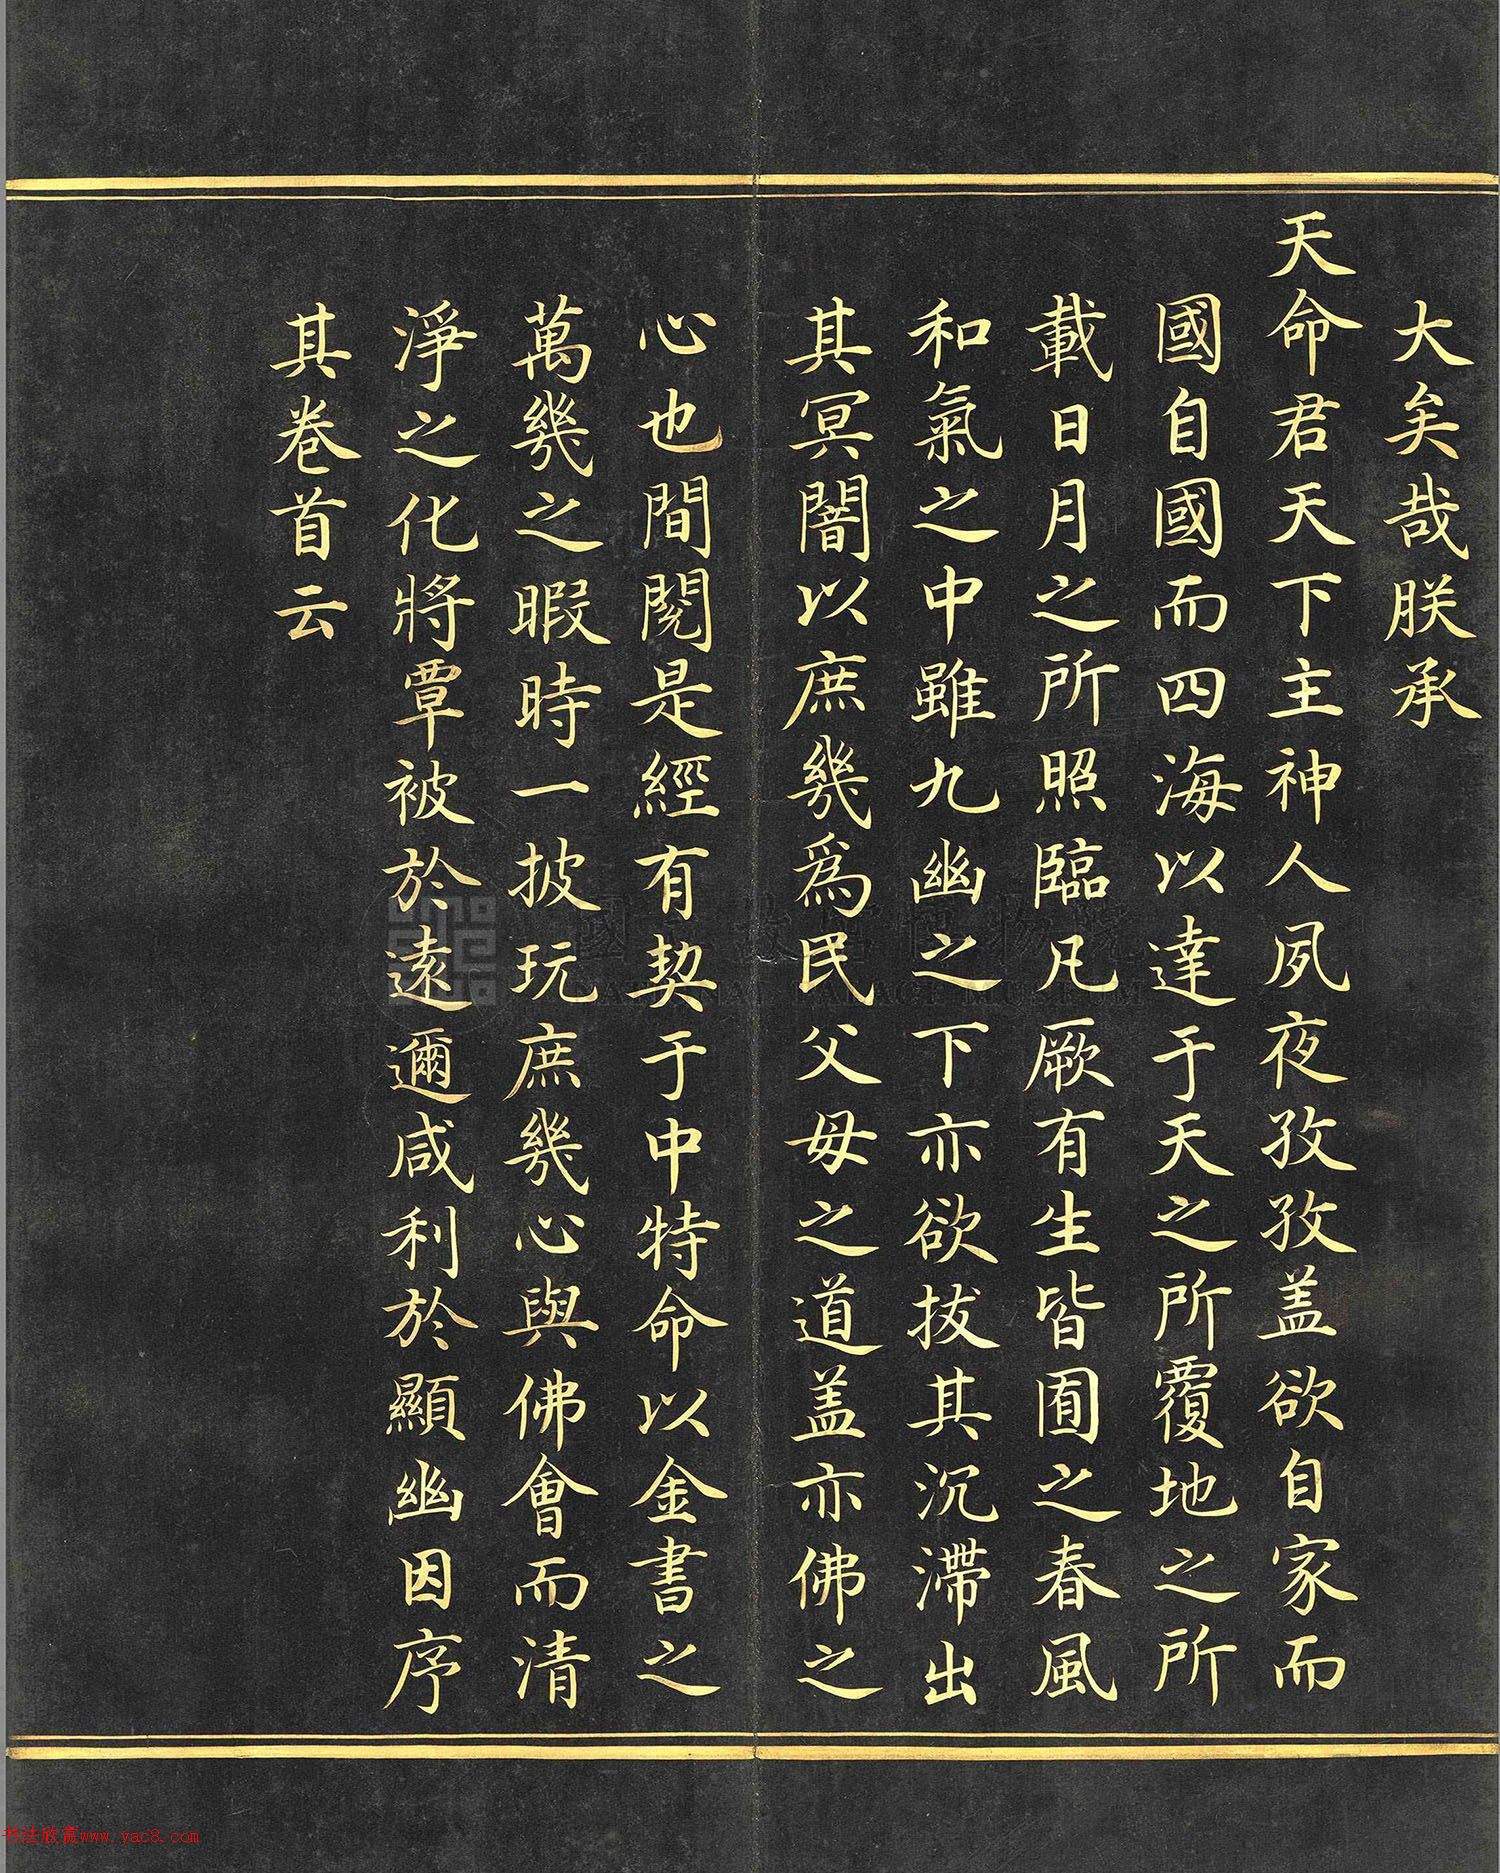 大矣哉朕承
天命君天下主神人夙夜孜孜盖欲自家而
國自國而四海以達于天之所覆地之所
載日月之所照臨凡厥有生皆囿之春風
和氣之中雖九幽之下亦欲拔其沉滯出
其冥闇以庶幾爲民父母之道盖亦佛之
心也間閱是經有契于中特命以金書之
萬幾之暇時一披玩庶幾心與佛會而清
淨之化將覃被於遠邇咸利於顯幽因序
其卷首云
NATIONAL PALACE MUSEUM
书法欣赏www.yac8.com